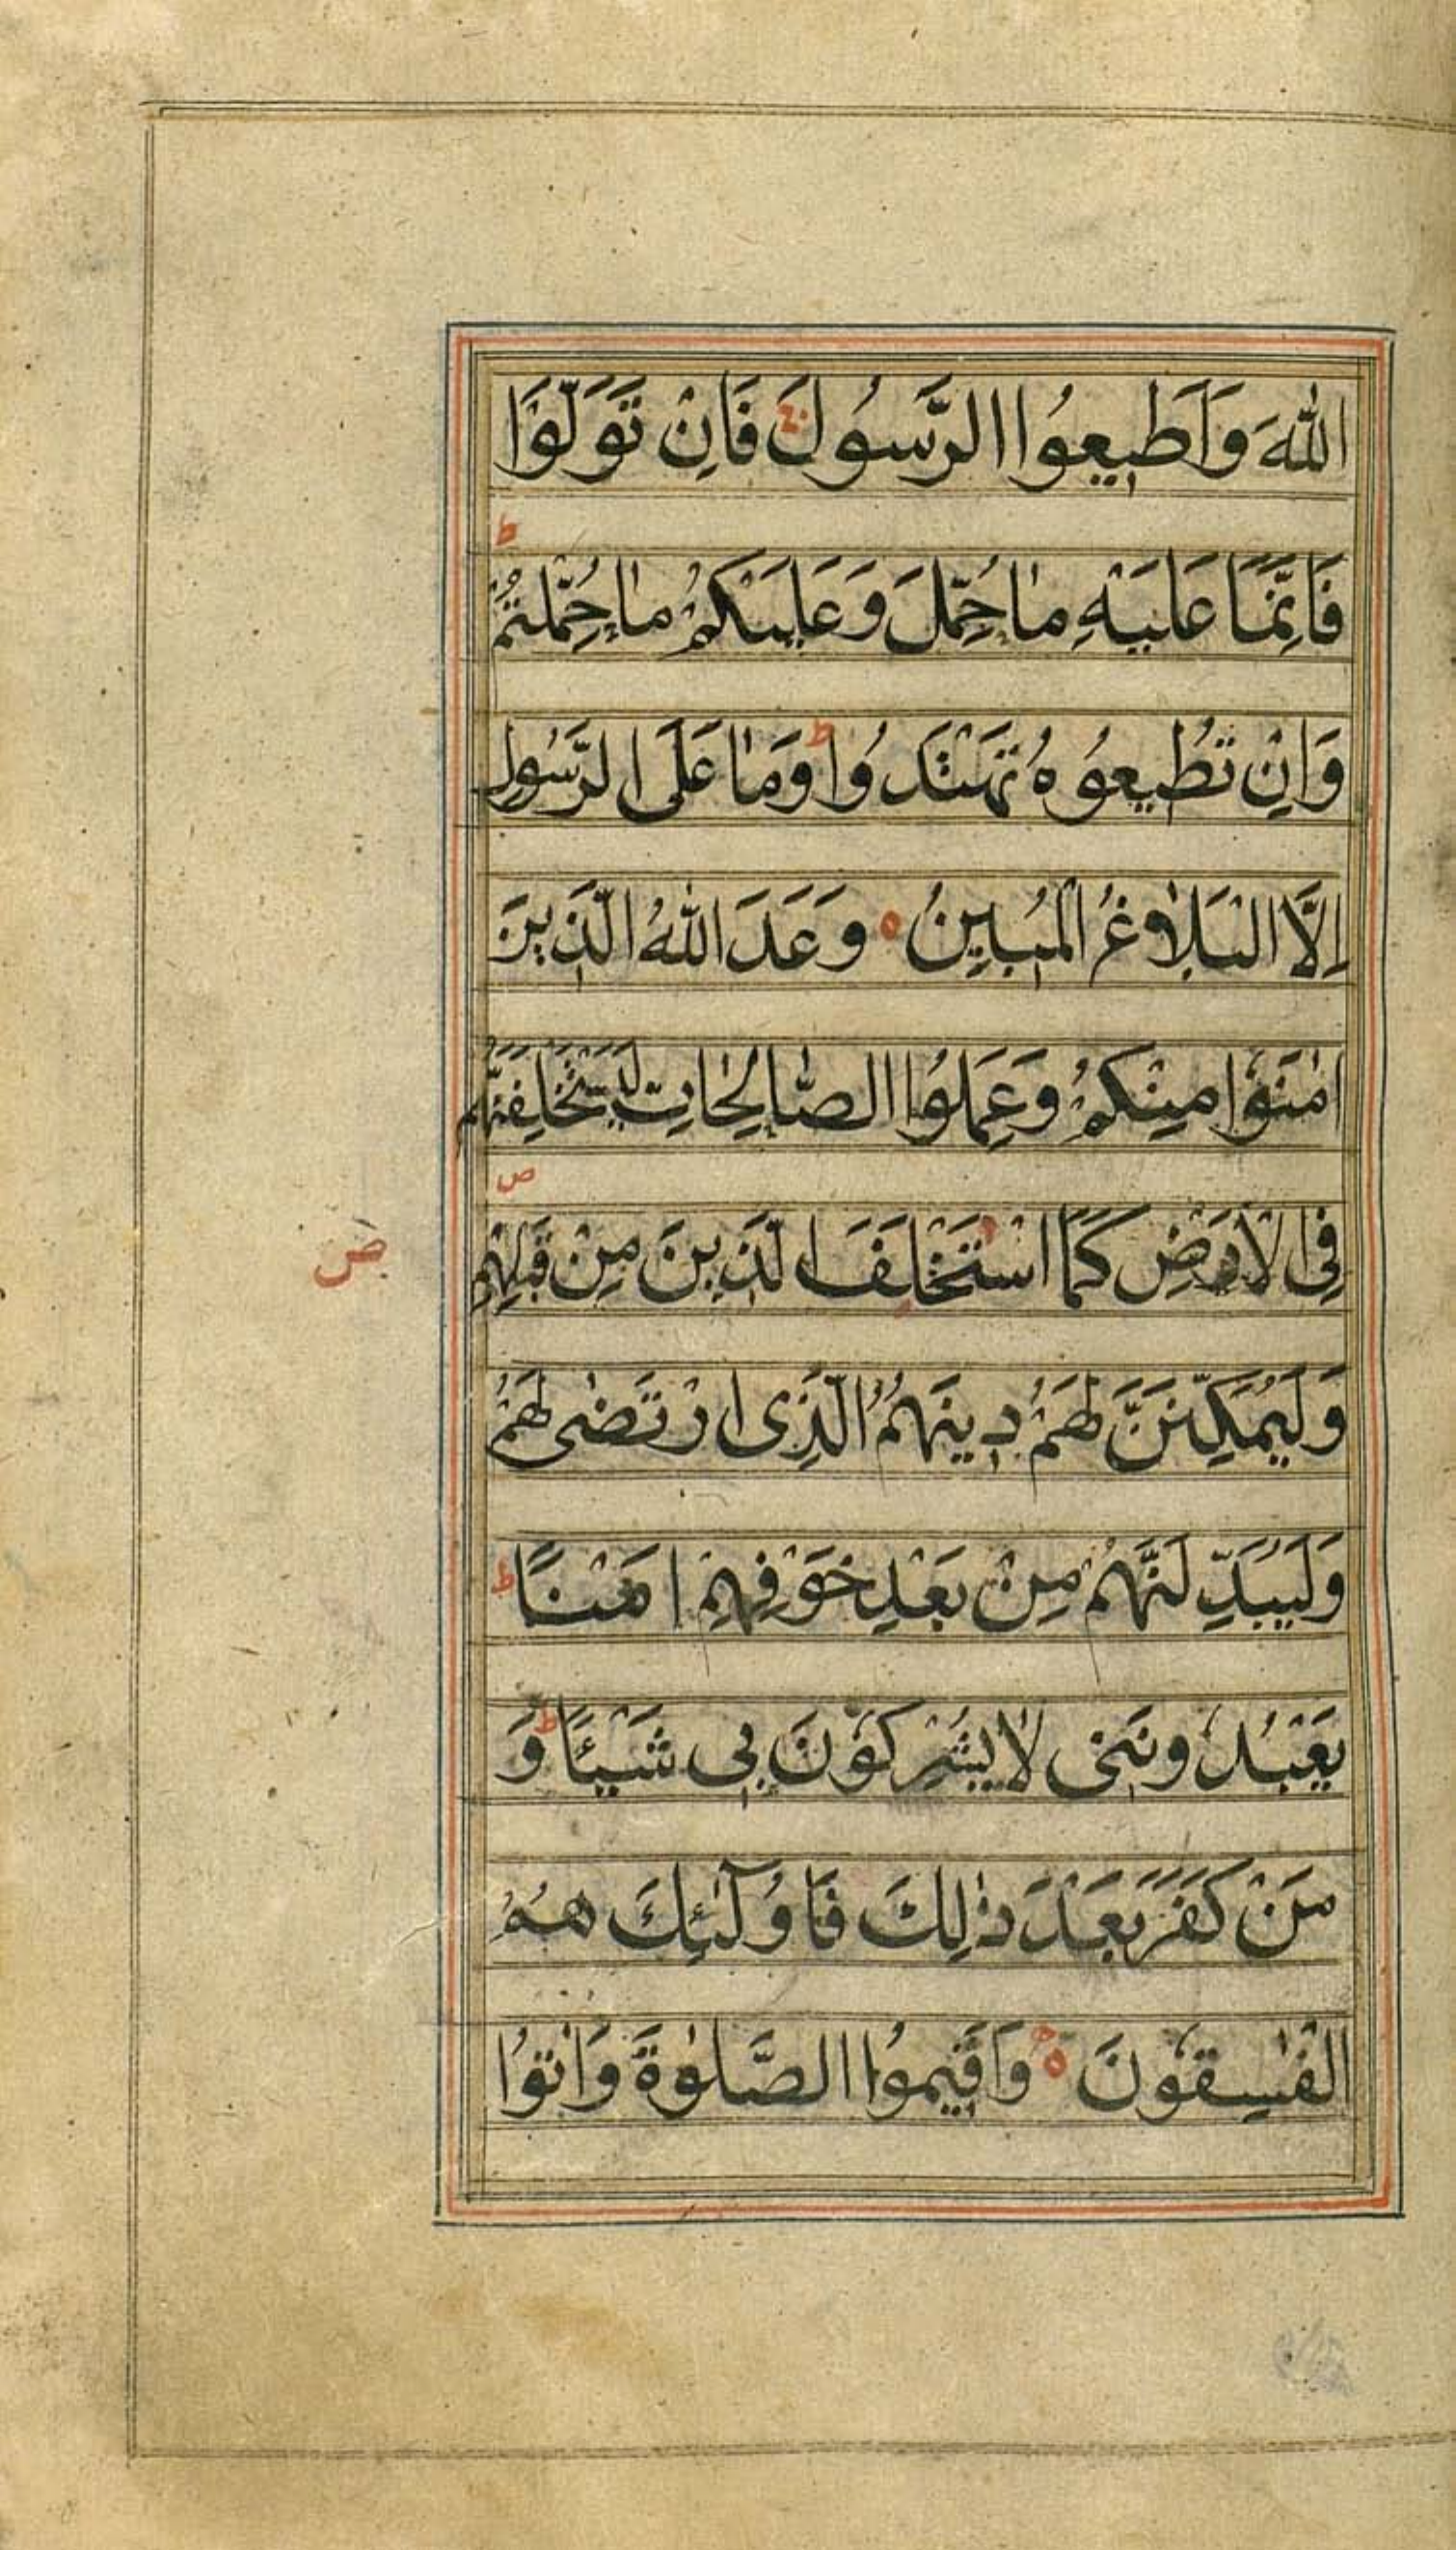 اللّٰهَ وَاَطِيعُوا الرَّسُولَ فَاِنْ تَوَلَّوْا
ط
فَاِنَّمَا عَلَيْهِ مَا حُمِّلَ وَعَلَيْكُمْ مَا حُمِّلْتُمْ
وَاِنْ تُطِيعُوهُ تَهْتَدُوا ط وَمَا عَلَى الرَّسُولِ
اِلَّا الْبَلَاغُ الْمُبِينُ ه وَعَدَ اللّٰهُ الَّذِينَ
اٰمَنُوا مِنْكُمْ وَعَمِلُوا الصَّالِحَاتِ لَيَسْتَخْلِفَنَّهُمْ
ص
فِى الْاَرْضِ كَمَا اسْتَخْلَفَ الَّذِينَ مِنْ قَبْلِهِمْ
ض
وَلَيُمَكِّنَنَّ لَهُمْ دِينَهُمُ الَّذِى ارْتَضٰى لَهُمْ
وَلَيُبَدِّلَنَّهُمْ مِنْ بَعْدِ خَوْفِهِمْ اَمْنًا ط
يَعْبُدُونَنِى لَا يُشْرِكُونَ بِى شَيْئًا ط وَ
مَنْ كَفَرَ بَعْدَ ذٰلِكَ فَاُولٰٓئِكَ هُمُ
الْفٰسِقُونَ ه وَاَقِيمُوا الصَّلٰوةَ وَاٰتُوا